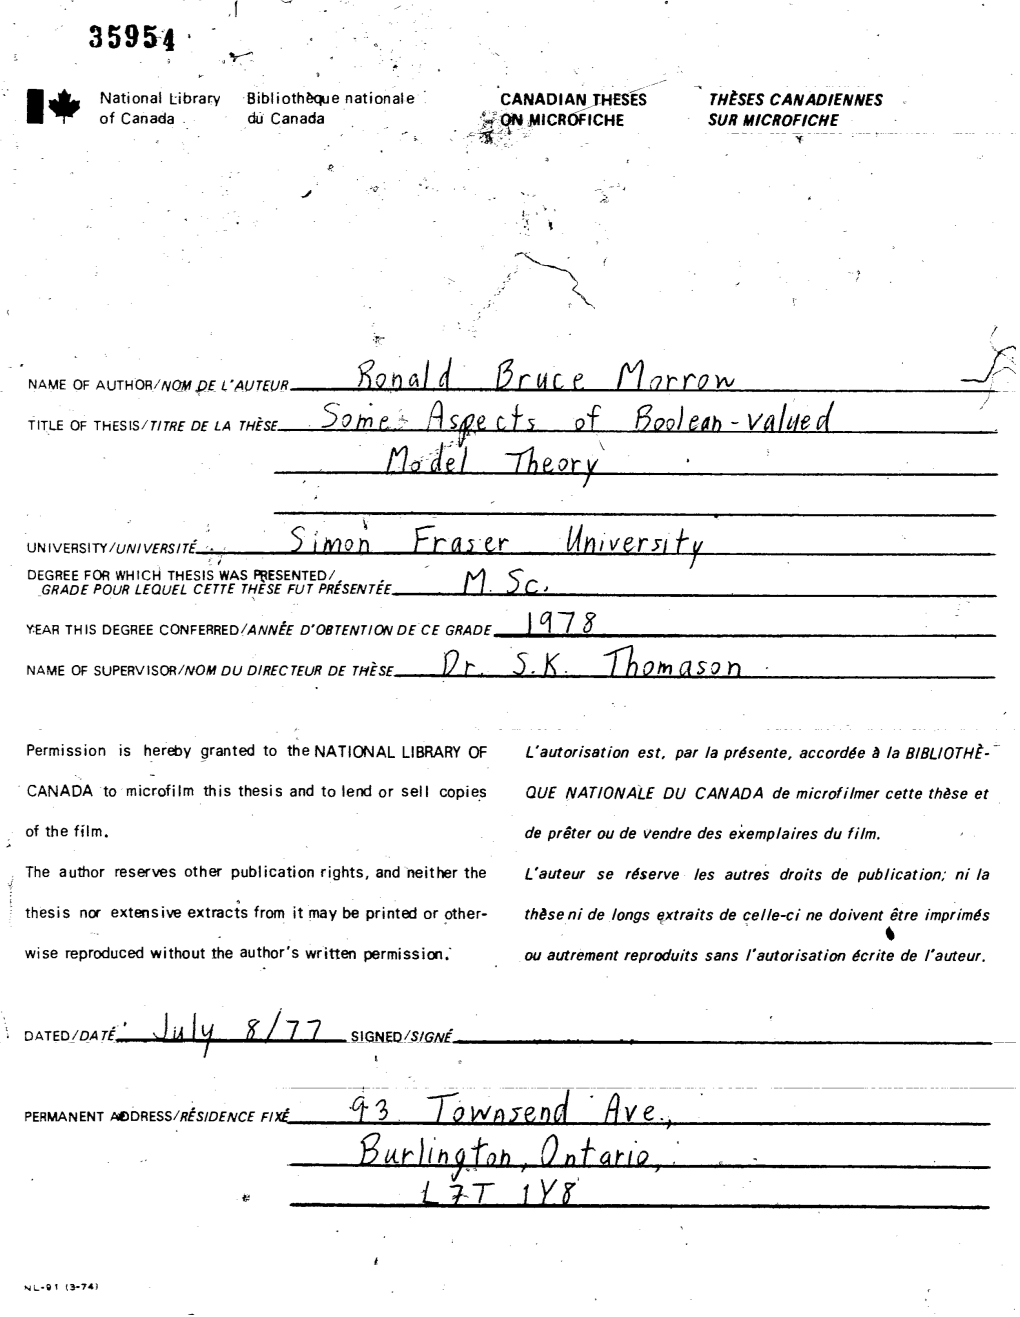 35954
National Library of Canada
Bibliothèque nationale du Canada
CANADIAN THESES ON MICROFICHE
THÈSES CANADIENNES SUR MICROFICHE
NAME OF AUTHOR/NOM DE L'AUTEUR Ronald Bruce Morrow
TITLE OF THESIS/TITRE DE LA THÈSE Some Aspects of Boolean-valued
Model Theory
UNIVERSITY/UNIVERSITÉ Simon Fraser University
DEGREE FOR WHICH THESIS WAS PRESENTED/
GRADE POUR LEQUEL CETTE THÈSE FUT PRÉSENTÉE M. Sc.
YEAR THIS DEGREE CONFERRED/ANNÉE D'OBTENTION DE CE GRADE 1978
NAME OF SUPERVISOR/NOM DU DIRECTEUR DE THÈSE Dr. S.K. Thomason
Permission is hereby granted to the NATIONAL LIBRARY OF
CANADA to microfilm this thesis and to lend or sell copies
of the film.
The author reserves other publication rights, and neither the
thesis nor extensive extracts from it may be printed or other-
wise reproduced without the author's written permission.
L'autorisation est, par la présente, accordée à la BIBLIOTHÈ-
QUE NATIONALE DU CANADA de microfilmer cette thèse et
de prêter ou de vendre des exemplaires du film.
L'auteur se réserve les autres droits de publication; ni la
thèse ni de longs extraits de celle-ci ne doivent être imprimés
ou autrement reproduits sans l'autorisation écrite de l'auteur.
DATED/DATÉ July 8/77 SIGNED/SIGNÉ
PERMANENT ADDRESS/RÉSIDENCE FIXÉ 93 Townsend Ave.,
Burlington, Ontario,
L7T 1Y8
NL-91 (3-74)